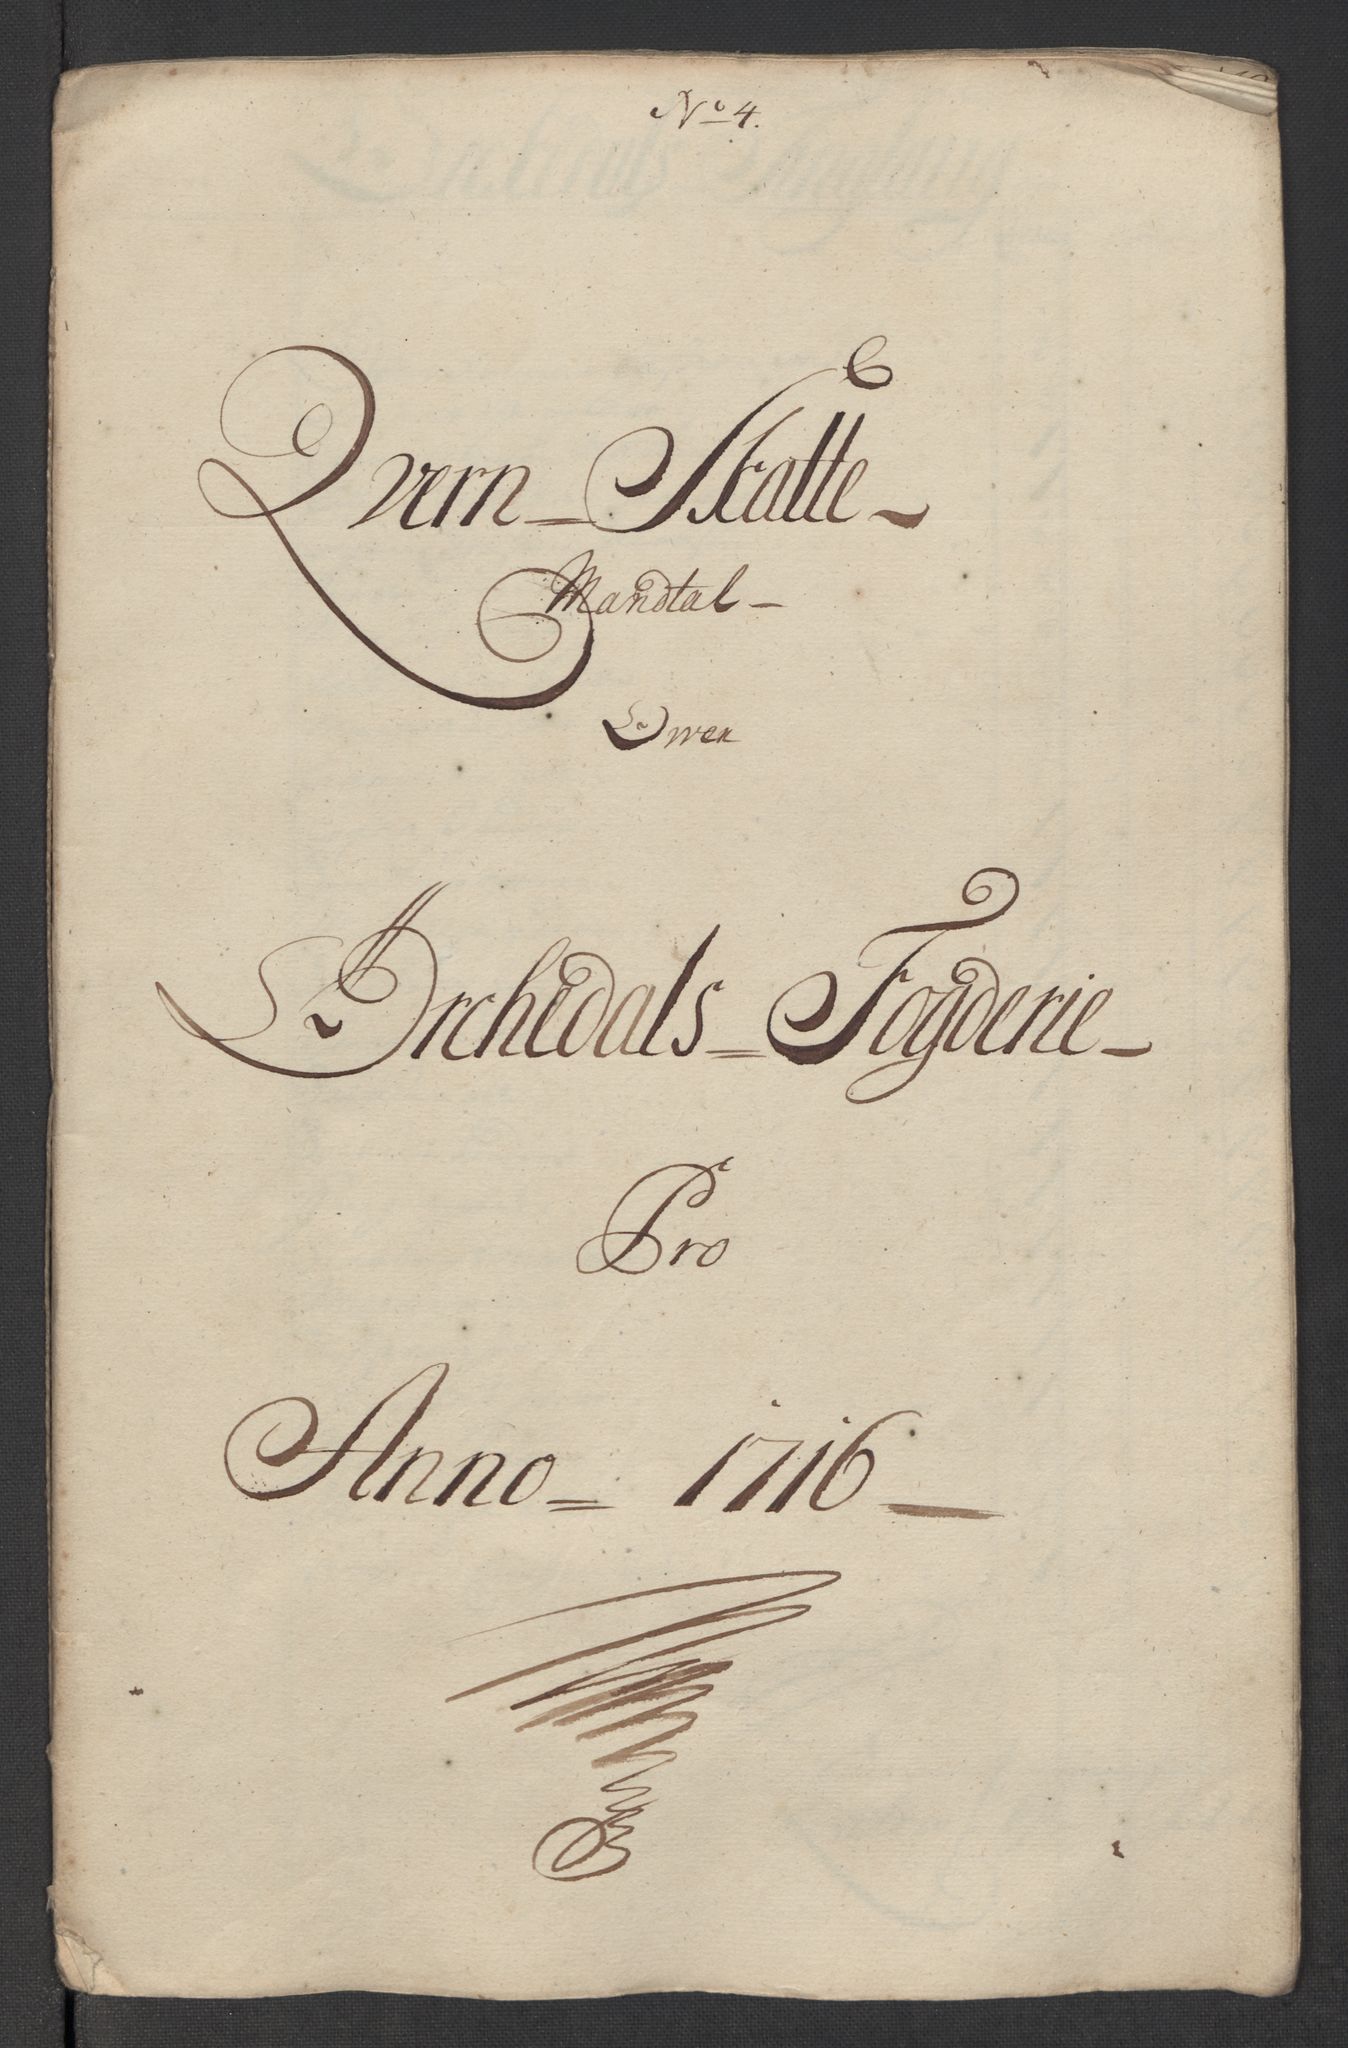 No 4.
Qvern = Skatte -
Mandtal -
Over
Orchedals = Fogderie -
Pro
Anno = 1716 -